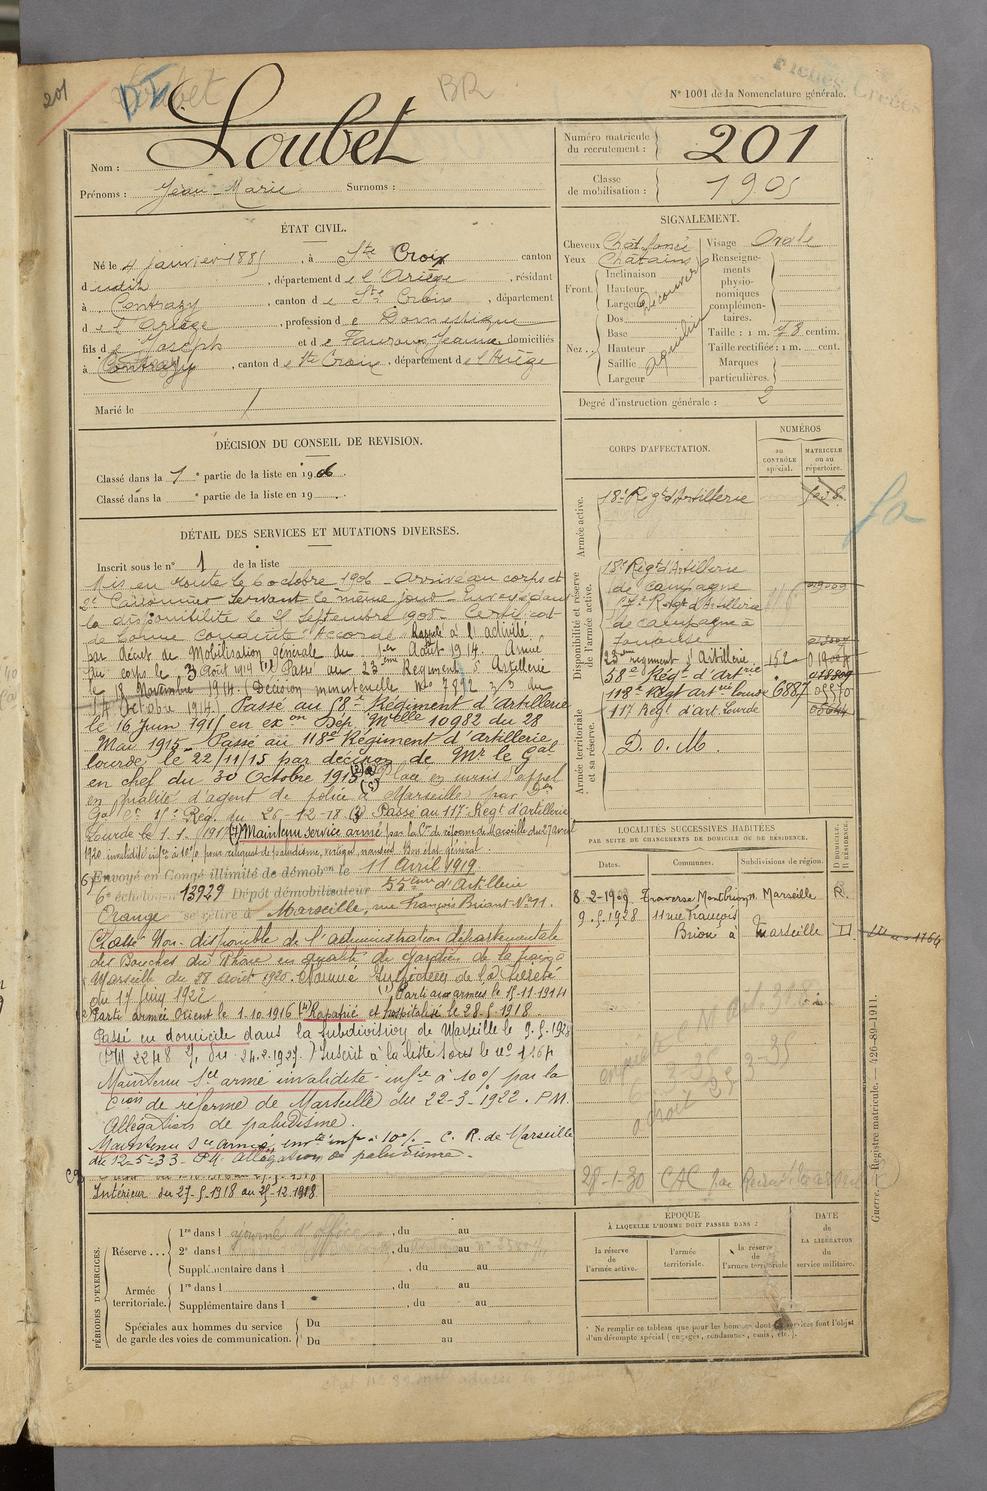 201
Loubet
BR
Fiches Créées
N° 1001 de la Nomenclature générale.
Nom : Loubet
Prénoms : Jean-Marie Surnoms :
Numéro matricule du recrutement : 201
Classe de mobilisation : 1905
ÉTAT CIVIL.
Né le 4 janvier 1885, à Ste Croix canton
dudit, département de l'Ariège, résidant
à Contrazy, canton de Ste Croix, département
de l'Ariège, profession de Domestique
fils de Joseph et de Jeanne domiciliés
à Contrazy, canton de Ste Croix, département de l'Ariège
Marié le
SIGNALEMENT.
Cheveux Chât. foncé
Yeux Châtains
Front. Inclinaison
Hauteur
Largeur
Découvert
Nez. Dos
Base
Hauteur
Saillie
Largeur
Aquilin
Visage Ovale
Renseignements physionomiques complémentaires.
Taille : 1 m. 78 centim.
Taille rectifiée : 1 m. cent.
Marques particulières.
Degré d'instruction générale : 2
DÉCISION DU CONSEIL DE REVISION.
Classé dans la 1e partie de la liste en 1906.
Classé dans la e partie de la liste en 19 .
DÉTAIL DES SERVICES ET MUTATIONS DIVERSES.
Inscrit sous le n° 1 de la liste
Mis en route le 6 octobre 1906 - Arrivé au corps et
2e Canonnier servant le même jour - Envoyé dans
la disponibilité le 25 septembre 1908 - Certificat
de bonne conduite "Accordé" Rappelé à l'activité
par décret de Mobilisation générale du 1er Août 1914. Arrivé
au corps le 3 Août 1914 Passé au 23ème Régiment d'Artillerie
le 18 Novembre 1914 (Décision ministérielle No 7892 3/3 du
14 Octobre 1914.) Passé au 58e Régiment d'Artillerie
le 16 Juin 1915 en exon Dép. Mtelle 10982 du 28
Mai 1915 - Passé au 118e Régiment d'artillerie
lourde, le 22/11/15 par décision de Mr le Gal
en chef du 30 Octobre 1915 Placé en sursis d'appel
en qualité d'agent de police à Marseille par
Gal Ct 15e Rég. du 26-12-18 Passé au 117e Regt d'Artillerie
Lourde le 1.1.1919 Maintenu service armé par la Con de réforme de Marseille du 27 avril
1920 invalidité infre à 10% pour reliquat de paludisme, vertiges, nausées Bon état général
Envoyé en Congé illimité de démobon le 11 Avril 1919.
6e échelon n° 13929 Dépôt démobilisateur 55ème d'Artillerie
Orange se retire à Marseille, rue François Briant No 11.
Classé Non-disponible de l'administration départementale
des Bouches du Rhône en qualité de gardien de la paix à
Marseille du 28 août 1920. Nommé de la Sûreté
du 17 Juin 1922
(1) Parti aux armées le 15-11-1914
Parti armée Orient le 1.10.1916 (4) Rapatrié et hospitalisé le 28-5-1918.
Passé en domicile dans la subdivision de Marseille le 9-5-1928
Inscrit à la liste sous le no 1164
Maintenu Sce armé invalidité infre à 10% par la
Cion de réforme de Marseille du 22-3-1922. P.M.
Allégation de paludisme.
Maintenu Sce armé, invté infre à 10% - C. R. de Marseille
du 12-5-33 - P.M. Allégation de paludisme.
Intérieur du 27-5-1918 au 25-12-1918
CORPS D'AFFECTATION.
NUMÉROS
au CONTRÔLE spécial.
MATRICULE ou au répertoire.
Armée active.
18e Régt d'Artillerie
Disponibilité et réserve de l'armée active.
18e Régt d'Artillerie de campagne
Régt d'Artillerie de campagne à
23ème régiment d'Artillerie 152
58e Régt d'Artrie
118e Régt artrie lourde 6887
Armée territoriale et sa réserve.
117 Régt d'art. Lourde
D. o. M.
LOCALITÉS SUCCESSIVES HABITÉES
PAR SUITE DE CHANGEMENTS DE DOMICILE OU DE RÉSIDENCE.
Dates. Communes. Subdivisions de région. D DOMICILE. R RÉSIDENCE.
8-2-1909 Traverse Montbrion Marseille R.
9-5-1928 11 rue François Brion à Marseille D
28-1-30
PÉRIODES D'EXERCICES.
Réserve... 1re dans l , du au
2e dans l , du au
Supplémentaire dans l , du au
Armée territoriale. 1re dans l , du au
Supplémentaire dans l , du au
Spéciales aux hommes du service de garde des voies de communication. Du au
Du au
ÉPOQUE
À LAQUELLE L'HOMME DOIT PASSER DANS :
la réserve de l'armée active.
l'armée territoriale.
la réserve de l'armée territoriale
DATE de LA LIBÉRATION du service militaire.
* Ne remplir ce tableau que pour les hommes dont les services font l'objet d'un décompte spécial (engagés, condamnés, omis, etc.).
Guerre. — Registre matricule. — 426-89-1911.